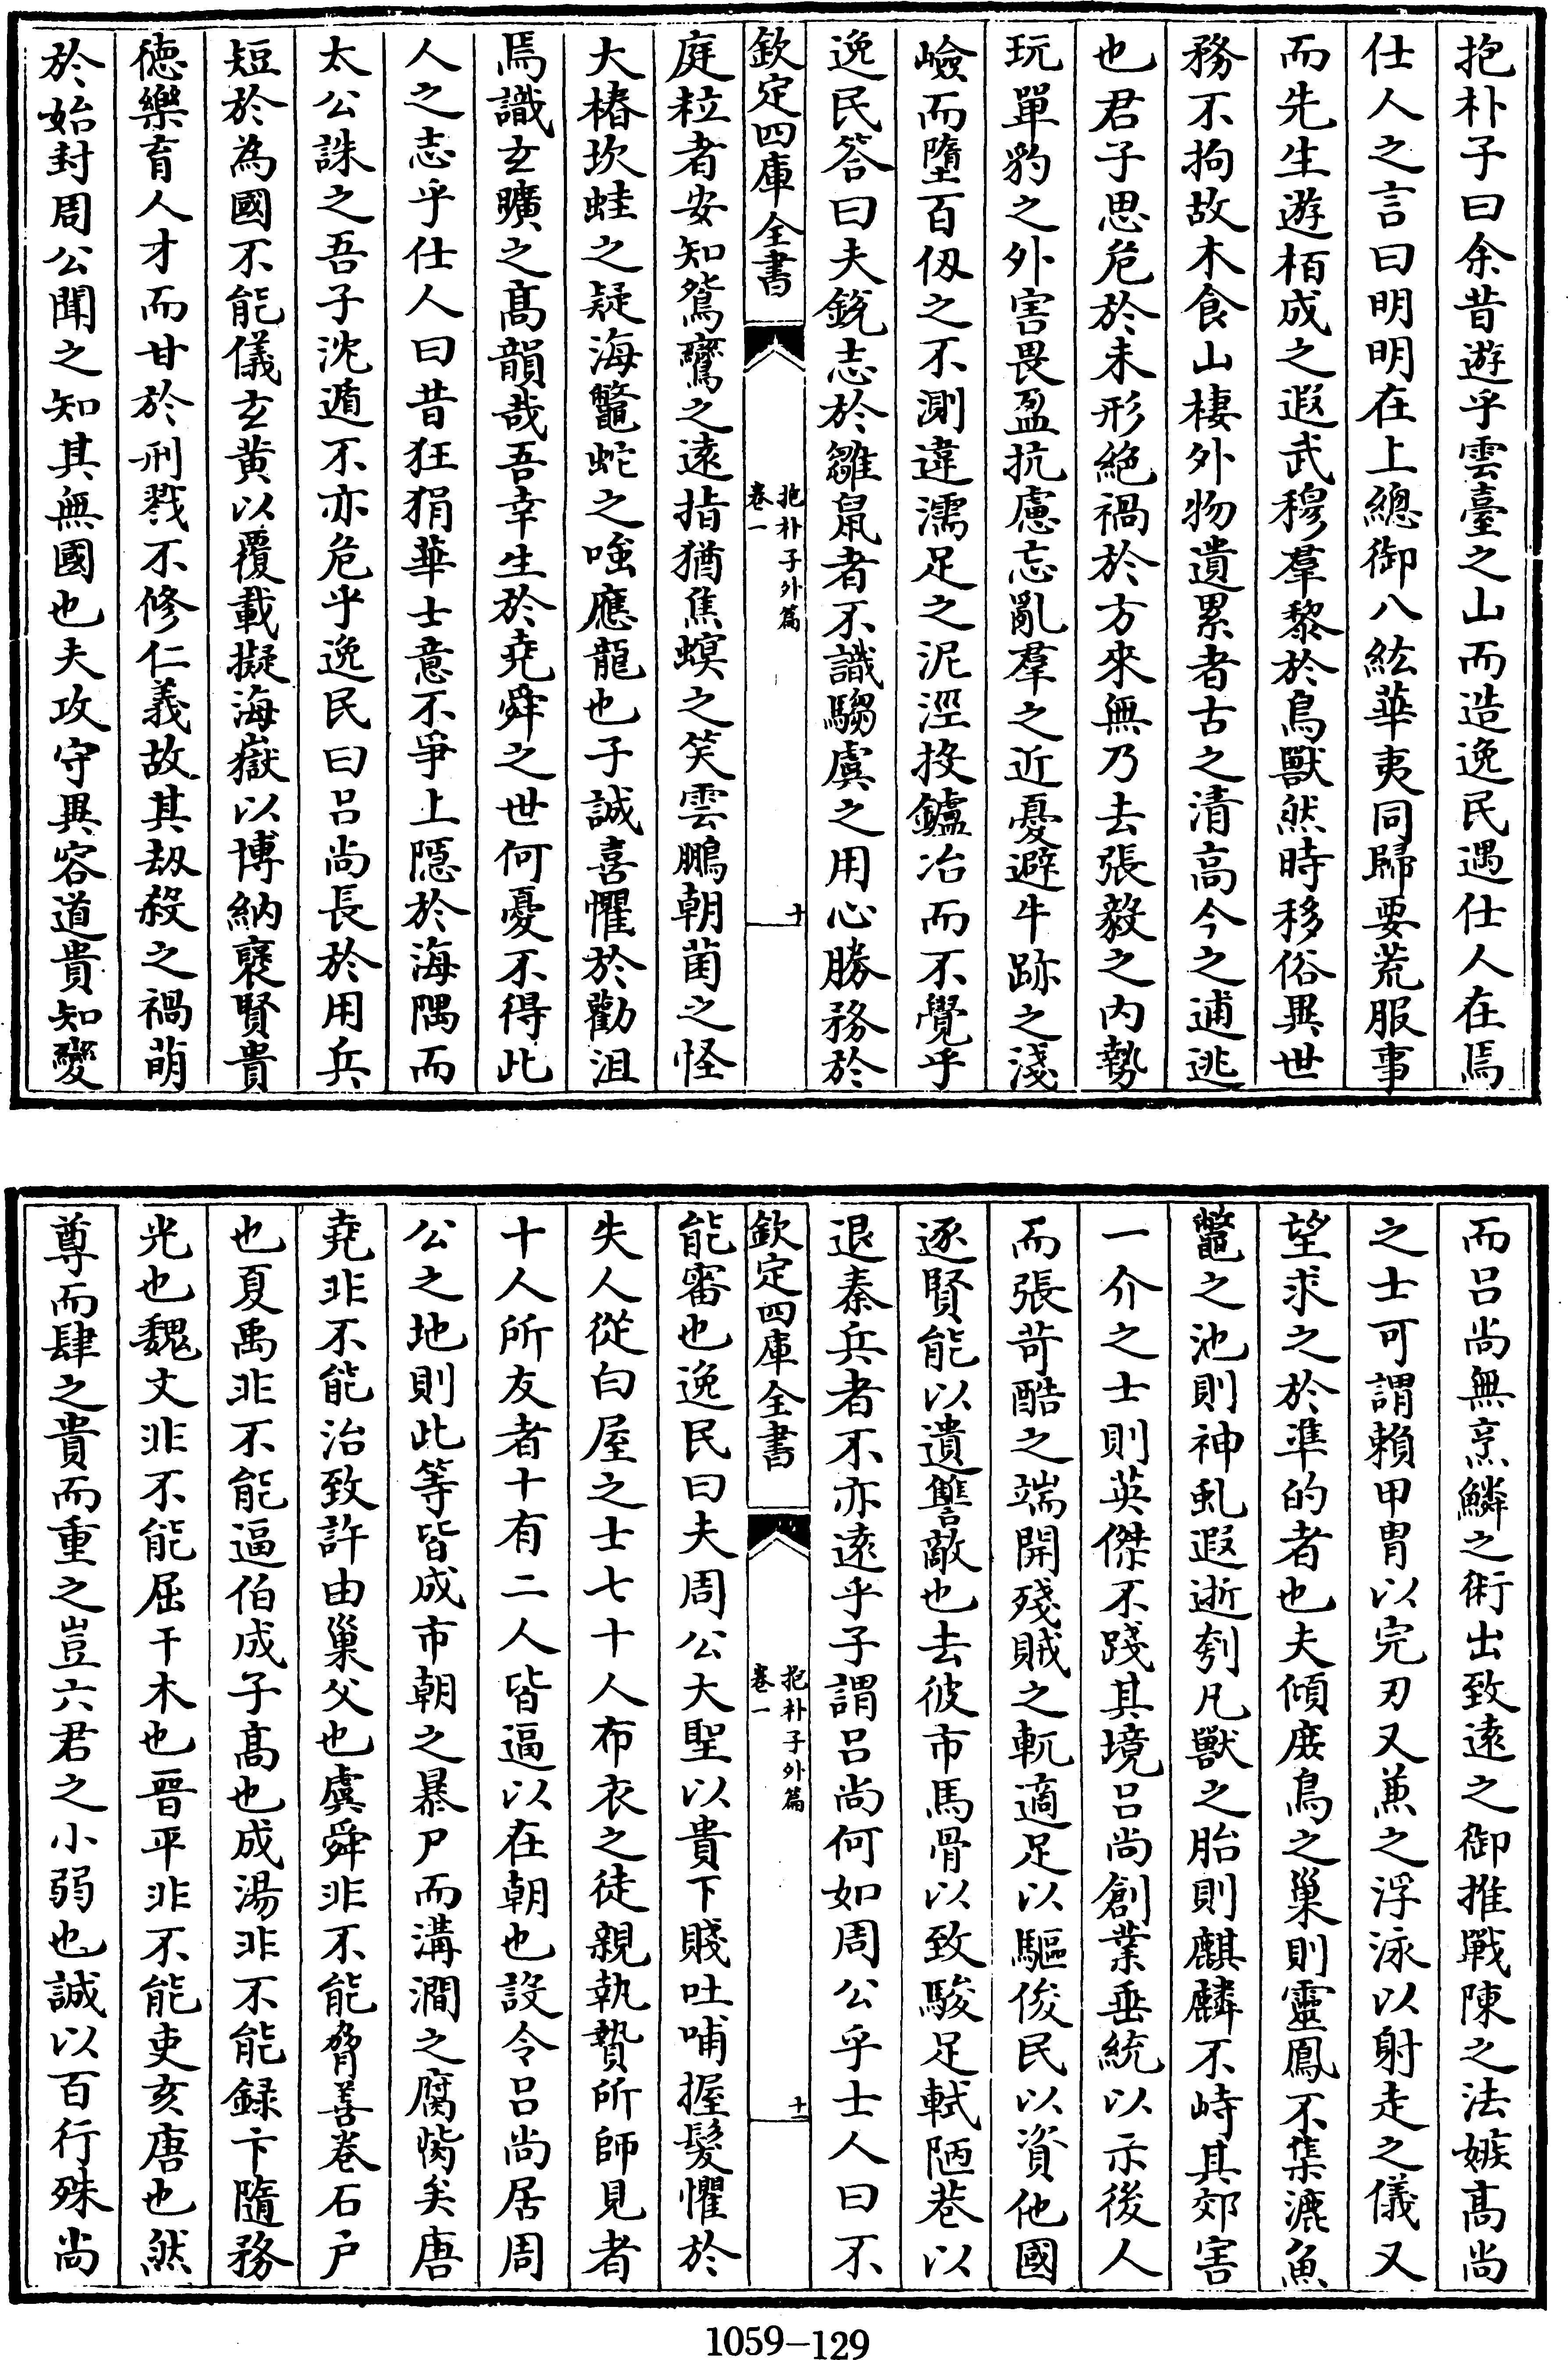 抱朴子曰余昔遊乎雲臺之山而造逸民遇仕人在焉
仕人之言曰明明在上總御八紘華夷同歸要荒服事
而先生遊栢成之遐武穆羣黎於鳥獸然時移俗異世
務不拘故木食山棲外物遺累者古之清高今之逋逃
也君子思危於未形絶禍於方來無乃去張毅之内勢
玩單豹之外害畏盈抗慮忘亂羣之近憂避牛跡之淺
嶮而墮百仭之不測違濡足之泥涇投鑪冶而不覺乎
逸民答曰夫鋭志於雛鼠者不識騶虞之用心勝務於
欽定四庫全書
抱朴子外篇
卷一
十
庭粒者安知鴛鸞之遠指猶焦螟之笑雲鵬朝菌之怪
大椿坎蛙之疑海鼈蛇之嗤應龍也子誠喜懼於勸沮
焉識玄曠之髙韻哉吾幸生於堯舜之世何憂不得此
人之志乎仕人曰昔狂狷華士意不爭上隱於海隅而
太公誅之吾子沈遁不亦危乎逸民曰吕尚長於用兵
短於為國不能儀玄黄以覆載擬海嶽以博納褒賢貴
德樂育人才而甘於刑戮不修仁義故其刼殺之禍萌
於始封周公聞之知其無國也夫攻守異容道貴知變
而吕尚無烹鱗之術出致遠之御推戰陳之法嫉髙尚
之士可謂賴甲胄以完刃又兼之浮泳以射走之儀又
望求之於準的者也夫傾庻鳥之巢則靈鳳不集漉魚
鼈之池則神虬遐逝刳凡獸之胎則麒麟不峙其郊害
一介之士則英傑不踐其境吕尚創業垂統以示後人
而張苛酷之端開殘賊之軏適足以驅俊民以資他國
逐賢能以遺讐敵也去彼市馬骨以致駿足軾陋巷以
退秦兵者不亦遠乎子謂吕尚何如周公乎士人曰不
欽定四庫全書
抱朴子外篇
卷一
十一
能審也逸民曰夫周公大聖以貴下賤吐哺握髮懼於
失人從白屋之士七十人布衣之徒親執贄所師見者
十人所友者十有二人皆逼以在朝也設令吕尚居周
公之地則此等皆成市朝之暴尸而溝澗之腐胔矣唐
堯非不能治致許由巢父也虞舜非不能脅善巻石户
也夏禹非不能逼伯成子髙也成湯非不能録卞隨務
光也魏文非不能屈干木也晉平非不能吏亥唐也然
尊而肆之貴而重之豈六君之小弱也誠以百行殊尚
1059-129